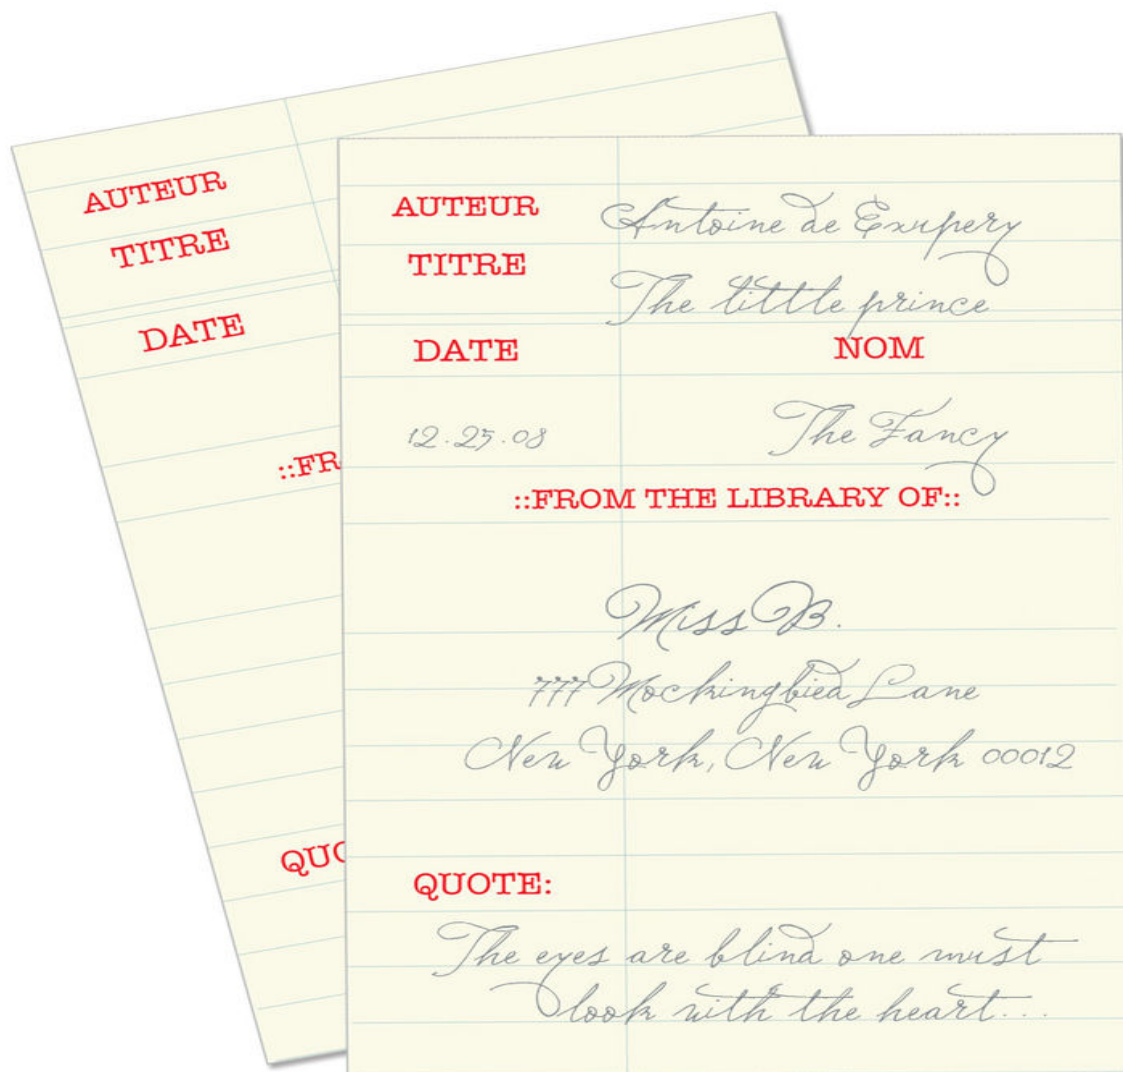 AUTEUR
TITRE
DATE
::FR
QUO
AUTEUR Antoine de Exupery
TITRE The little prince
DATE NOM
12.25.08 The Fancy
::FROM THE LIBRARY OF::
Miss B.
777 Mockingbied Lane
New York, New York 00012
QUOTE:
The eyes are blind one must
look with the heart...